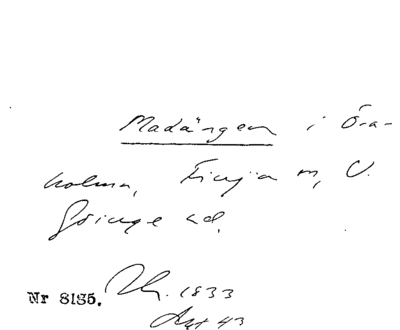 Madängen i Öra-
holma, Finja sn, V.
Göinge hd.
Nr 8135. Th. 1833
Akt 43